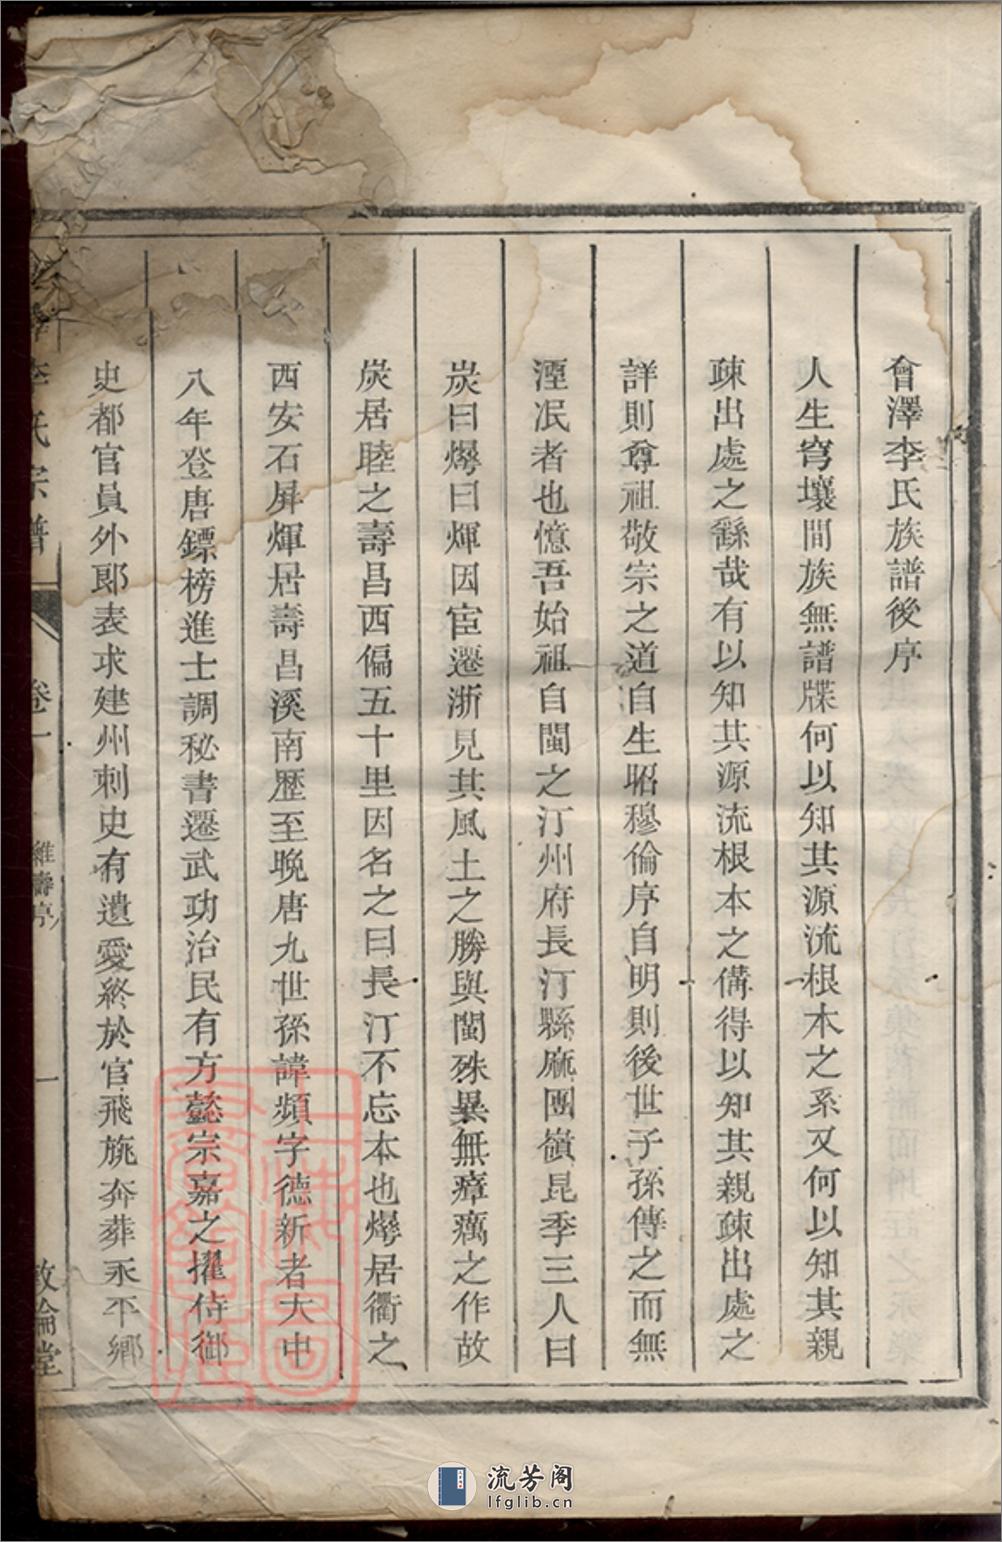 會澤李氏族譜後序
人生穹壤間族無譜牒何以知其源流根本之系又何以知其親
疎出處之繇哉有以知其源流根本之俻得以知其親疎出處之
詳則尊祖敬宗之道自生昭穆倫序自明則後世子孫傳之而無
湮泯者也憶吾始祖自閩之汀州府長汀縣麻團嶺昆季三人曰
炭曰爕曰煇因宦遷浙見其風土之勝與閩殊異無瘴癘之作故
炭居睦之壽昌西偏五十里因名之曰長汀不忘本也爕居衢之
西安石屏煇居壽昌溪南歷至晚唐九世孫諱頻字德新者大中
八年登唐鏢榜進士調秘書遷武功治民有方懿宗嘉之擢侍御
史都官員外郎表求建州刺史有遺愛終於官飛旐奔葬永平鄉
李氏宗譜
卷一
維壽序
一
敦倫堂
流芳阁
lfglib.cn